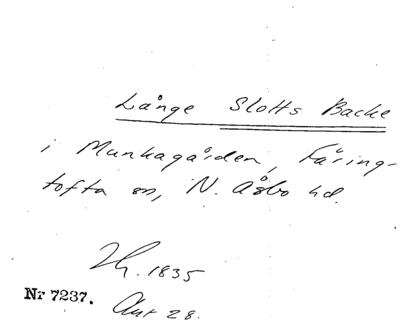 Långe Slotts Backe
i Munkagården, Färing-
tofta sn, N. Åsbo hd.
Zh. 1835
Nr 7237. Akt 28.